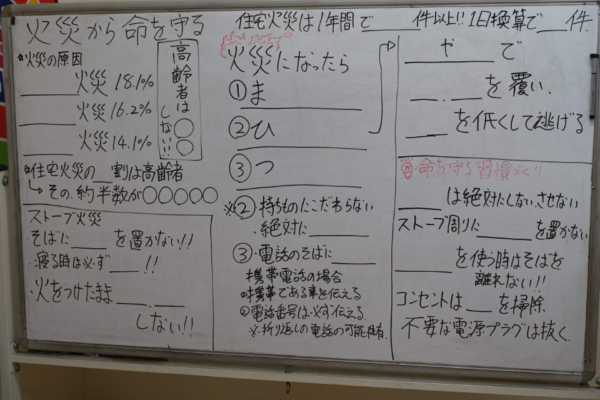 火災から命を守る
*火災の原因
____火災 18.1%
____火災 16.2%
____火災 14.1%
高齢者は○○しない○○
*住宅火災の__割は高齢者
↳その、約半数が○○○○○
ストーブ火災
そばに____を置かない!!
・寝る時は必ず____!!
・火をつけたまま____.____
しない!!
住宅火災は1年間で____件以上!! 1日換算で__件
火災になったら
①ま
②ひ
③つ
※②持ちものにこだわらない
・絶対に____
③・電話のそばに____
*携帯電話の場合
携帯である事を伝える
電話番号は必ず伝える
※折り返しの電話の可能性有.
____や____で
____.____を覆い.
____を低くして逃げる
命を守る習慣づくり
____は絶対にしない、させない
ストーブ周りに____を置かない
____を使う時はそばを
離れない!!
コンセントは__を掃除
不要な電源プラグは抜く